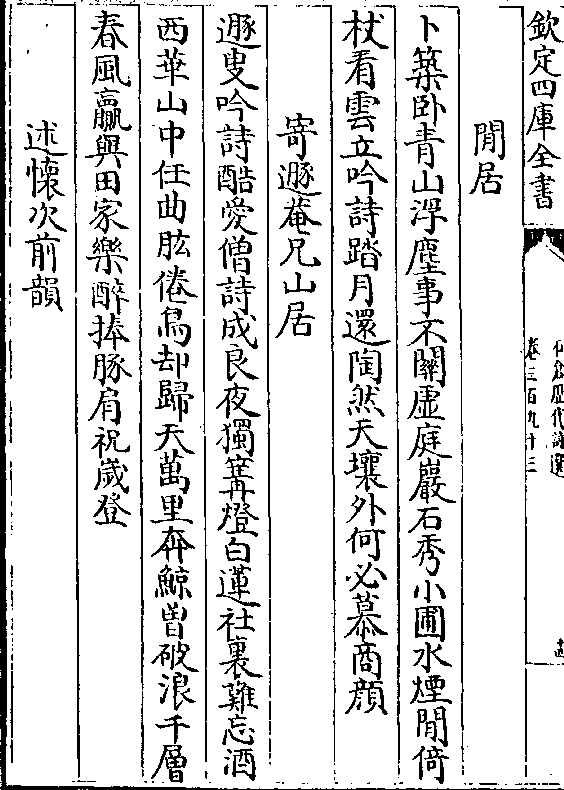 欽定四庫全書
卷三百九十三
閒居
卜築卧青山浮塵事不關虛庭巖石秀小圃水煙閒倚
杖看雲立吟詩踏月還陶然天壤外何必慕商顔
寄遯菴兄山居
遯叟吟詩酷愛僧詩成良夜獨篝燈白蓮社裏難忘酒
西華山中任曲肱倦鳥却歸天萬里奔鯨曽破浪千層
春風贏與田家樂醉捧豚肩祝歲登
述懷次前韻